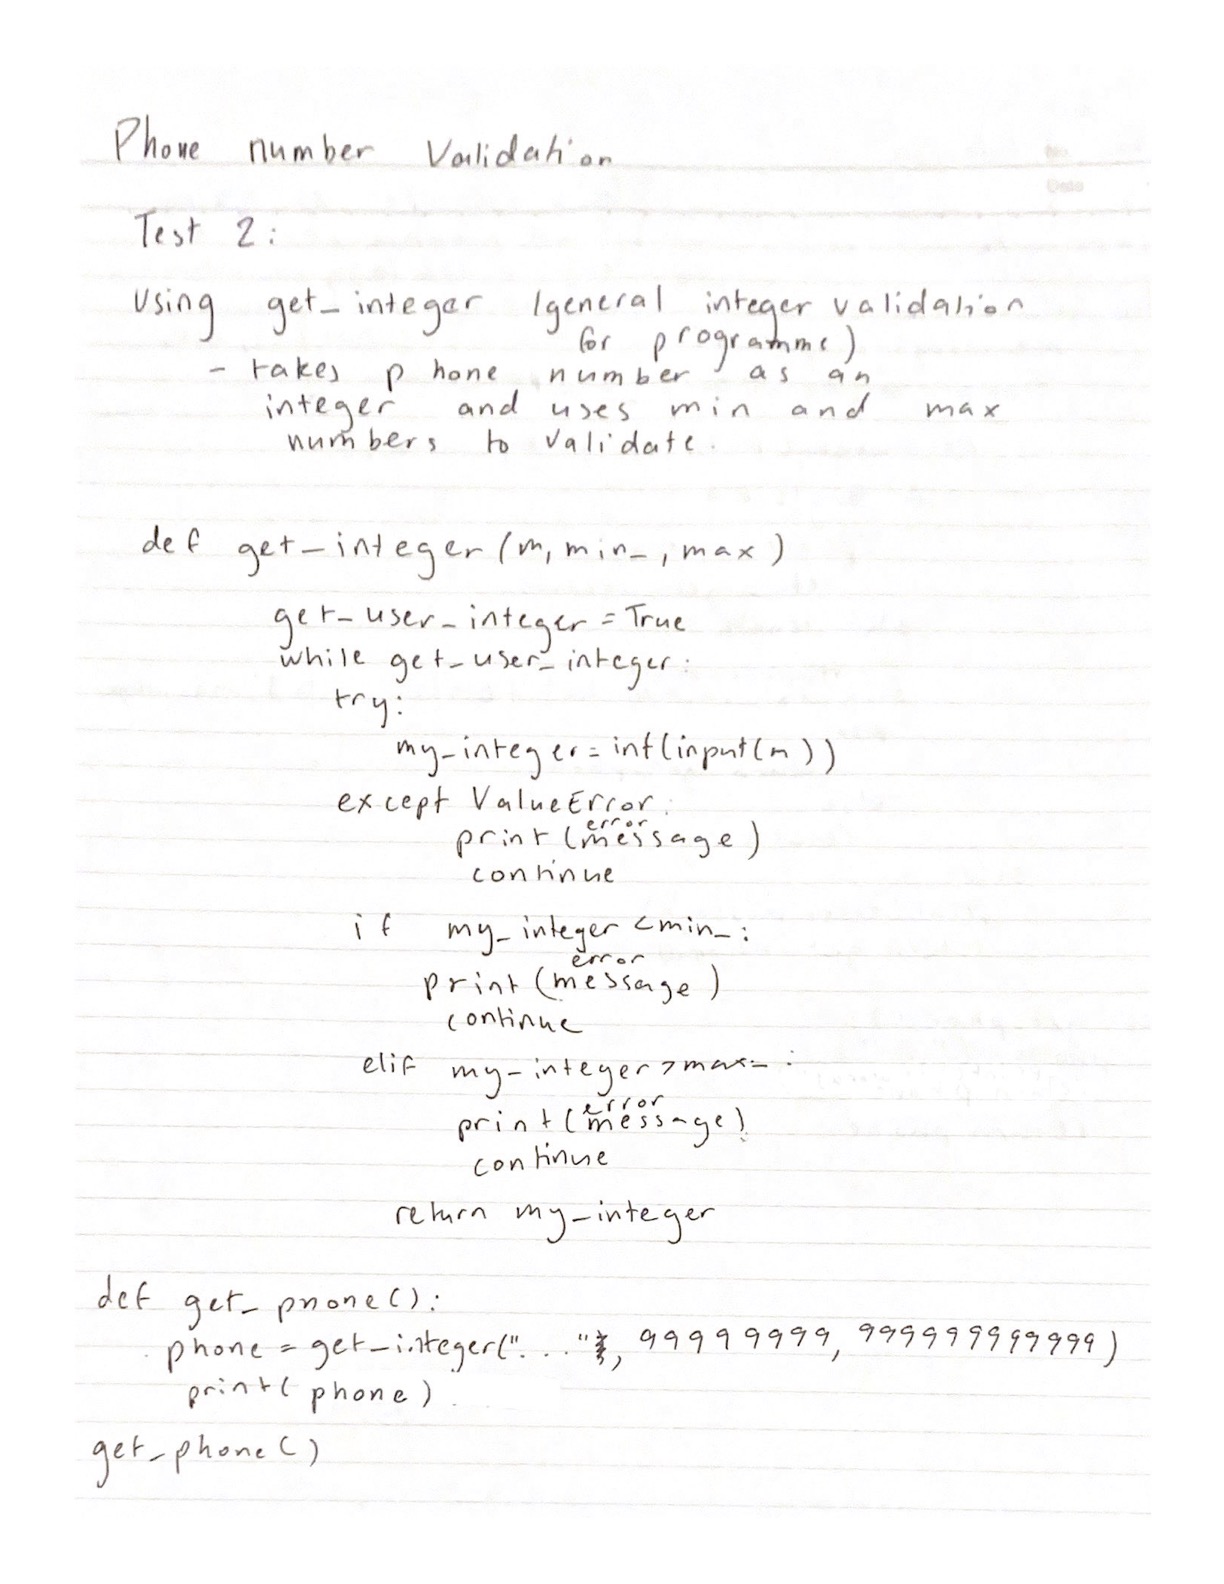 Phone number Validation
Test 2:
Using get_integer (general integer validation
for programme)
- takes phone number as an
integer and uses min and max
numbers to validate.
def get_integer(m, min_, max)
get_user_integer = True
while get_user_integer:
try:
my_integer = int(input(m))
except ValueError:
error
print(message)
continue
if my_integer < min_:
error
print(message)
continue
elif my_integer > max_:
error
print(message)
continue
return my_integer
def get_phone():
phone = get_integer("...", 99999999, 999999999999)
print(phone)
get_phone()
No
Date